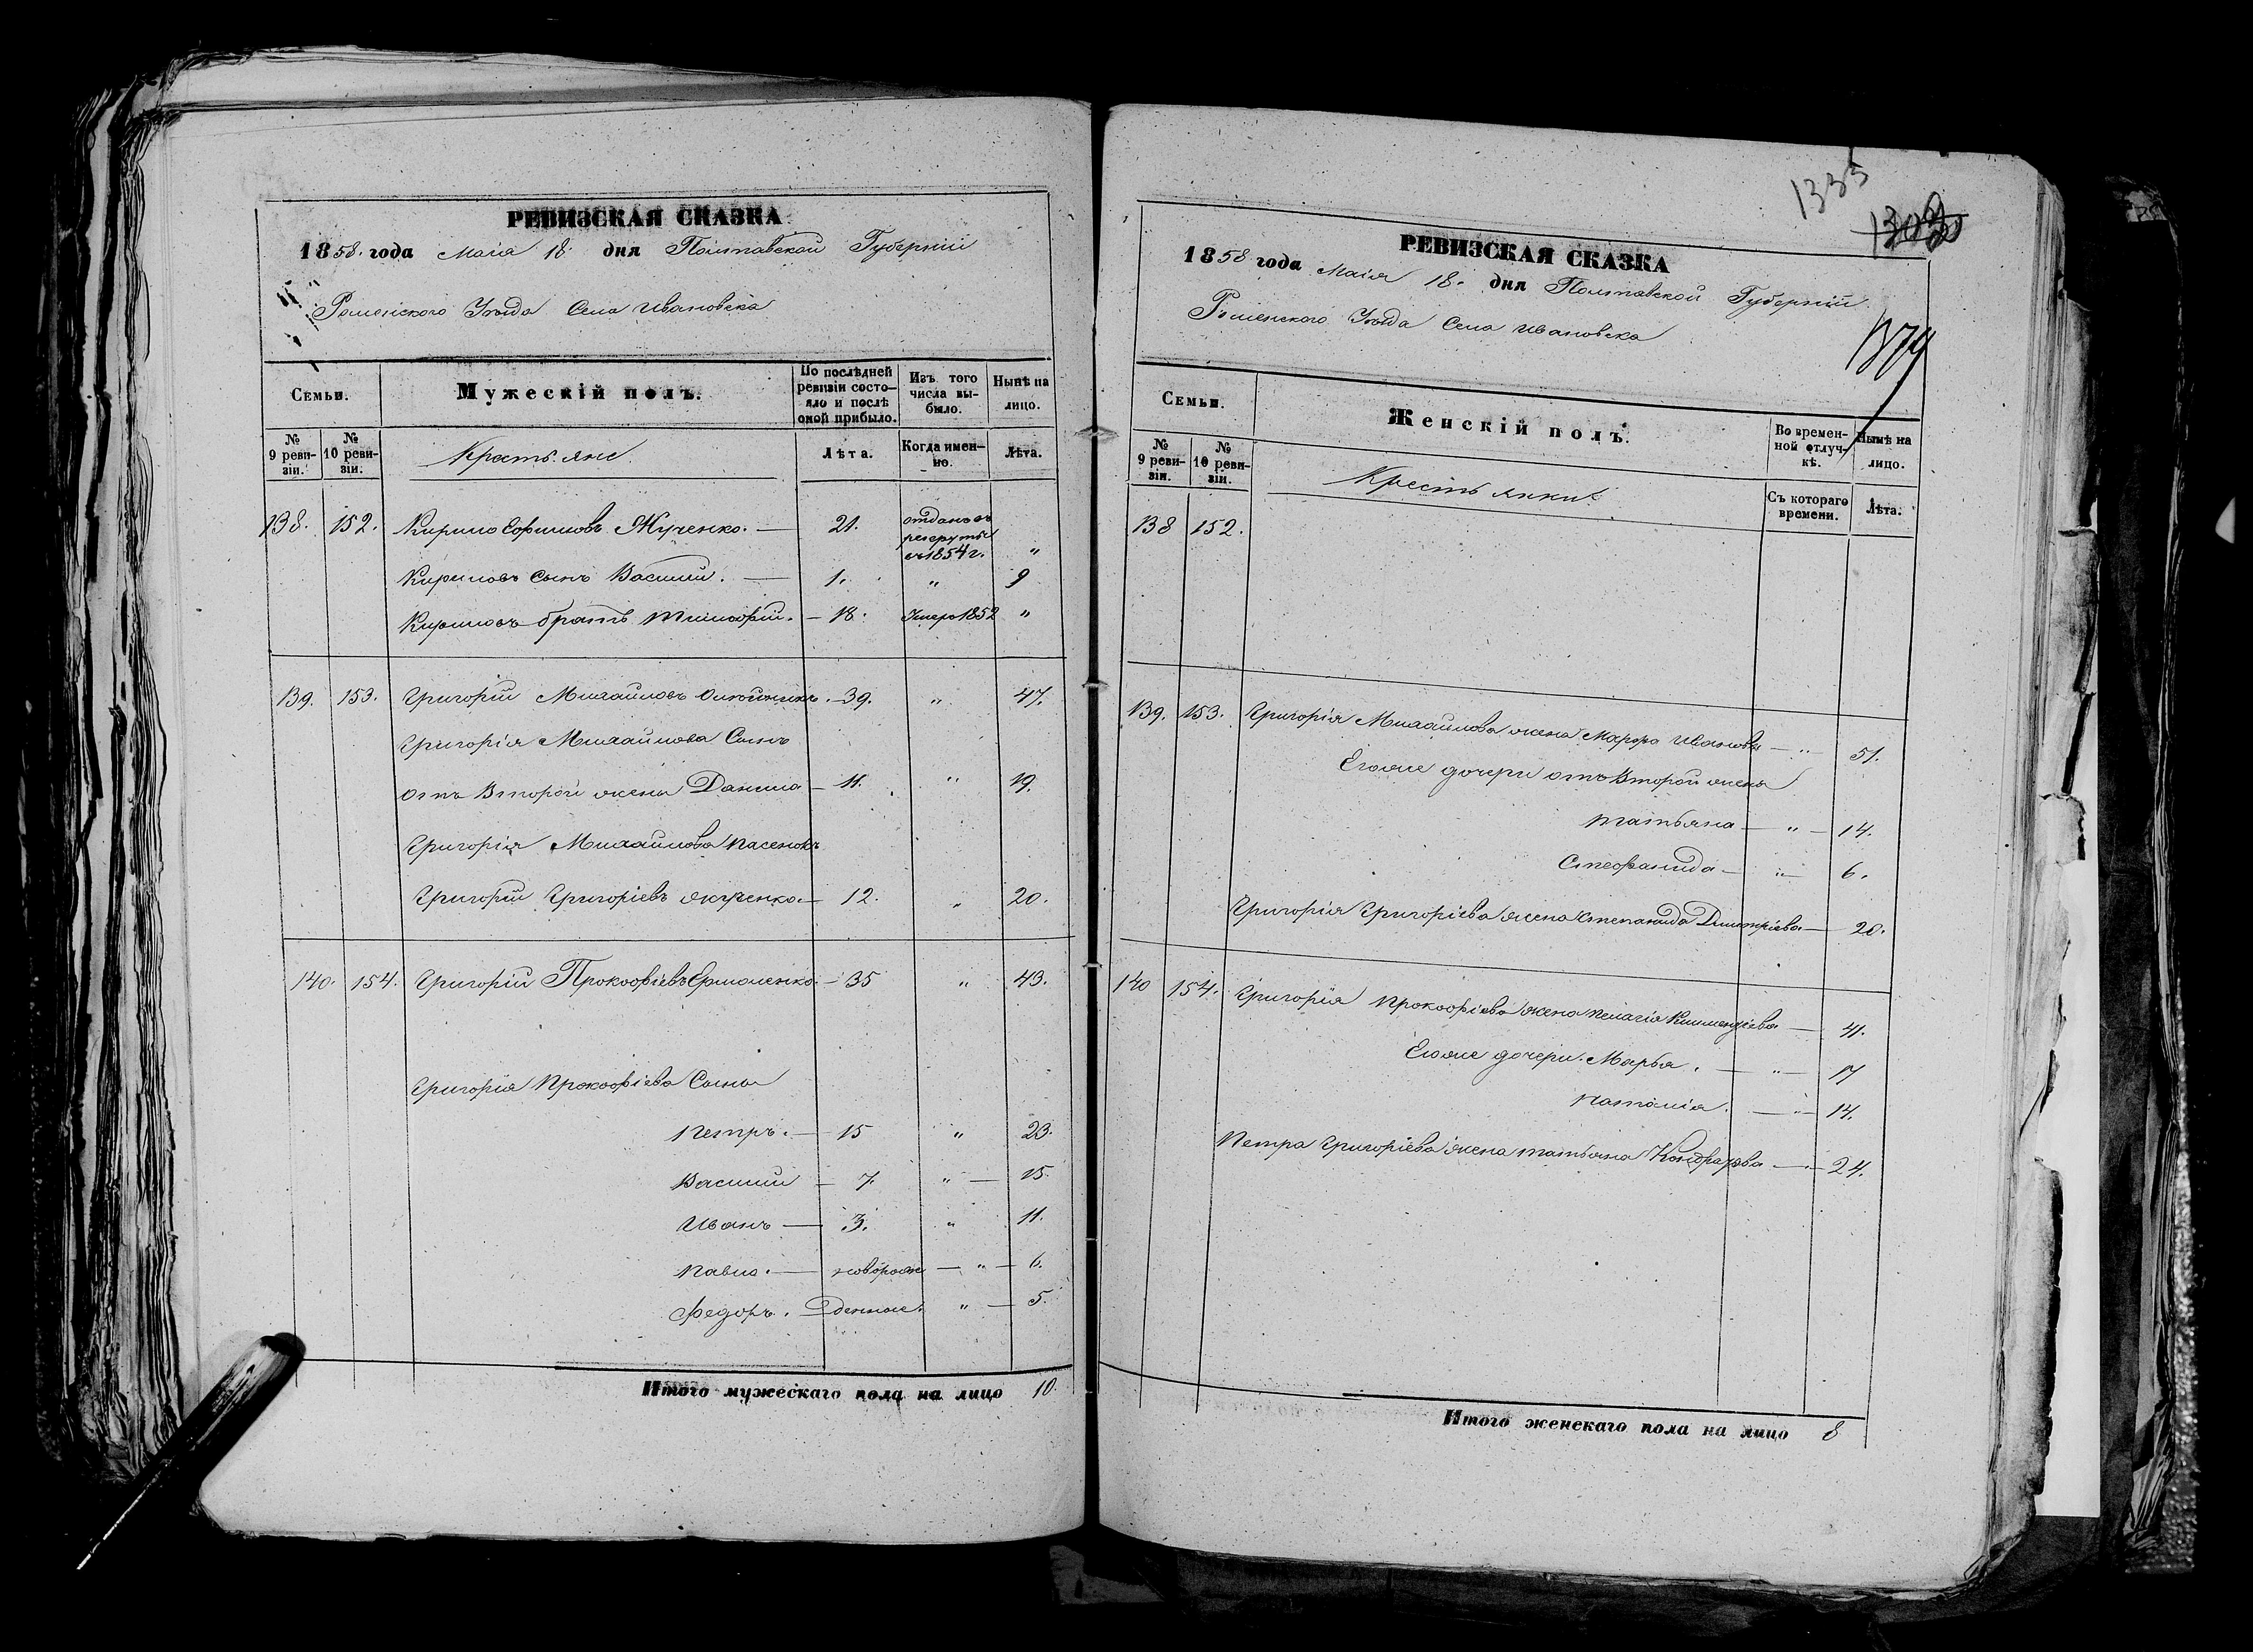 РЕВИЗСКАЯ СКАЗКА
1858. года Маія 18. дня Полтавской Губерніи
Роменского Уѣзда Села Ивановска
Семьи.
Мужескій полъ.
По послѣдней ревизіи состояло и послѣ оной прибыло.
Изъ того числа выбыло.
Нынѣ на лицо.
№ 9 ревизіи.
№ 10 ревизіи.
Крестьяне.
Лѣта.
Когда именно.
Лѣта.
138. 152. Кирило Ефимовъ Жученко. — 21. отданъ въ рекруты въ 1854 г. "
Кириловъ Сынъ Василий. — 1. " 9
Кириловъ братъ Тимофій. — 18. Умеръ 1852 "
139. 153. Григорій Михайловъ Олейникъ. — 39. " 47.
Григорія Михайлова Сынъ
отъ Второй жены Данило — 11. " 19.
Григорія Михайлова пасенокъ
Григорій Григоріевъ — 12. " 20.
140. 154. Григорій Прокофіевъ Ермоленко. — 35 " 43.
Григорія Прокофіева Сыны
Петръ. — 15 " 23.
Василий — 7. " — 15.
Иванъ — 3. " 11.
Павло. — новорож — " — 6.
Федоръ. — денные. " — 5.
Итого мужескаго пола на лицо 10.
1335
1379
РЕВИЗСКАЯ СКАЗКА
1858 года Маія 18. дня Полтавской Губерніи
Роменского Уѣзда Села Ивановска
Семьи.
Женскій полъ.
Во временной отлучкѣ.
Нынѣ на лицо.
№ 9 ревизіи.
№ 10 ревизіи.
Крестьянки.
Съ котораго времени.
Лѣта.
138 152.
139. 153. Григорія Михайлова жена Марфа Иванова — " — 51.
Егоже дочери отъ Второй жены
Татьяна — " — 14.
Стефанида — " — 6.
Григорія Григоріева жена Степанида Дмитріева — 20.
140 154. Григорія Прокофіева жена Пелагія Климентіева — 41.
Егоже дочери. Марья. — " — 17
Наталія. — " — 14.
Петра Григоріева жена Татьяна — 24.
Итого женскаго пола на лицо 8